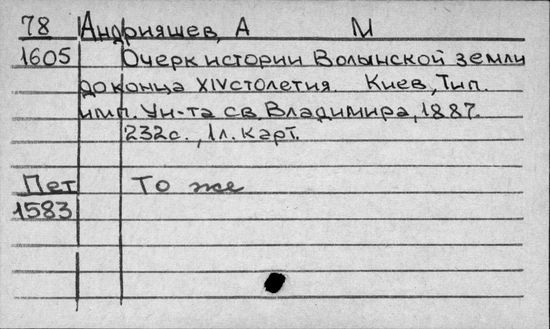 78 Андрияшев, А М
1605 Очерк истории Волынской земли
до конца XIV столетия. Киев, Тип.
имп. Ун-та св. Владимира, 1887.
232с., 1л. карт.
Пет То же
1583